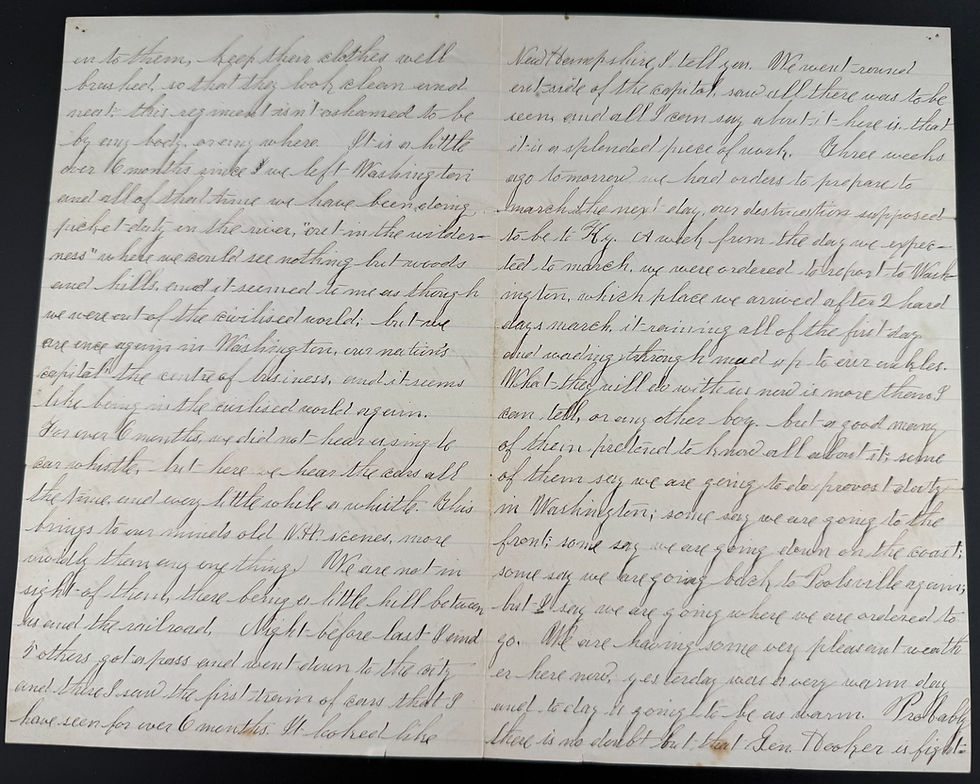 in to them, keep their clothes well
brushed, so that they look clean and
neat; this regiment isn't ashamed to be
by any body, or any where. It is a little
over 6 months since we left Washington
and all of that time we have been doing
picket duty in the river, "out in the wilder-
ness" where we could see nothing but woods
and hills, and it seemed to me as though
we were out of the civilised world; but we
are once again in Washington, our nation's
capital" the centre of business, and it seems
like being in the civilised world again.
For over 6 months, we did not hear a single
car whistle, but here we hear the cars all
the time, and every little while a whistle. This
brings to our minds old N.H. scenes, more
vividly than any one thing. We are not in
sight of them, there being a little hill between
us and the railroad. Night before last I and
5 others got a pass and went down to the city
and there I saw the first train of cars that I
have seen for over 6 months. It looked like
New Hampshire, I tell you. We went round
out-side of the capitol, saw all there was to be
seen, and all I can say about it here is, that
it is a splended piece of work. Three weeks
ago tomorrow we had orders to prepare to
march the next day, our destination supposed
to be to Ky. A week from the day we expec-
ted to march, we were ordered to report to Wash-
ington, which place we arrived after 2 hard
days march, it raining all of the first day
and wading through mud up to our ankles.
What they will do with us now is more than I
can tell, or any other boy. but a good many
of them pretend to know all about it; some
of them say we are going to do provost duty
in Washington; some say we are going to the
front; some say we are going down on the coast;
some say we are going back to Poolsville again,
but I say we are going where we are ordered to
go. We are having some very pleasant weath
er here now, yesterday was a very warm day
and to day is going to be as warm. Probably
there is no doubt but that Gen. Hooker is fight-